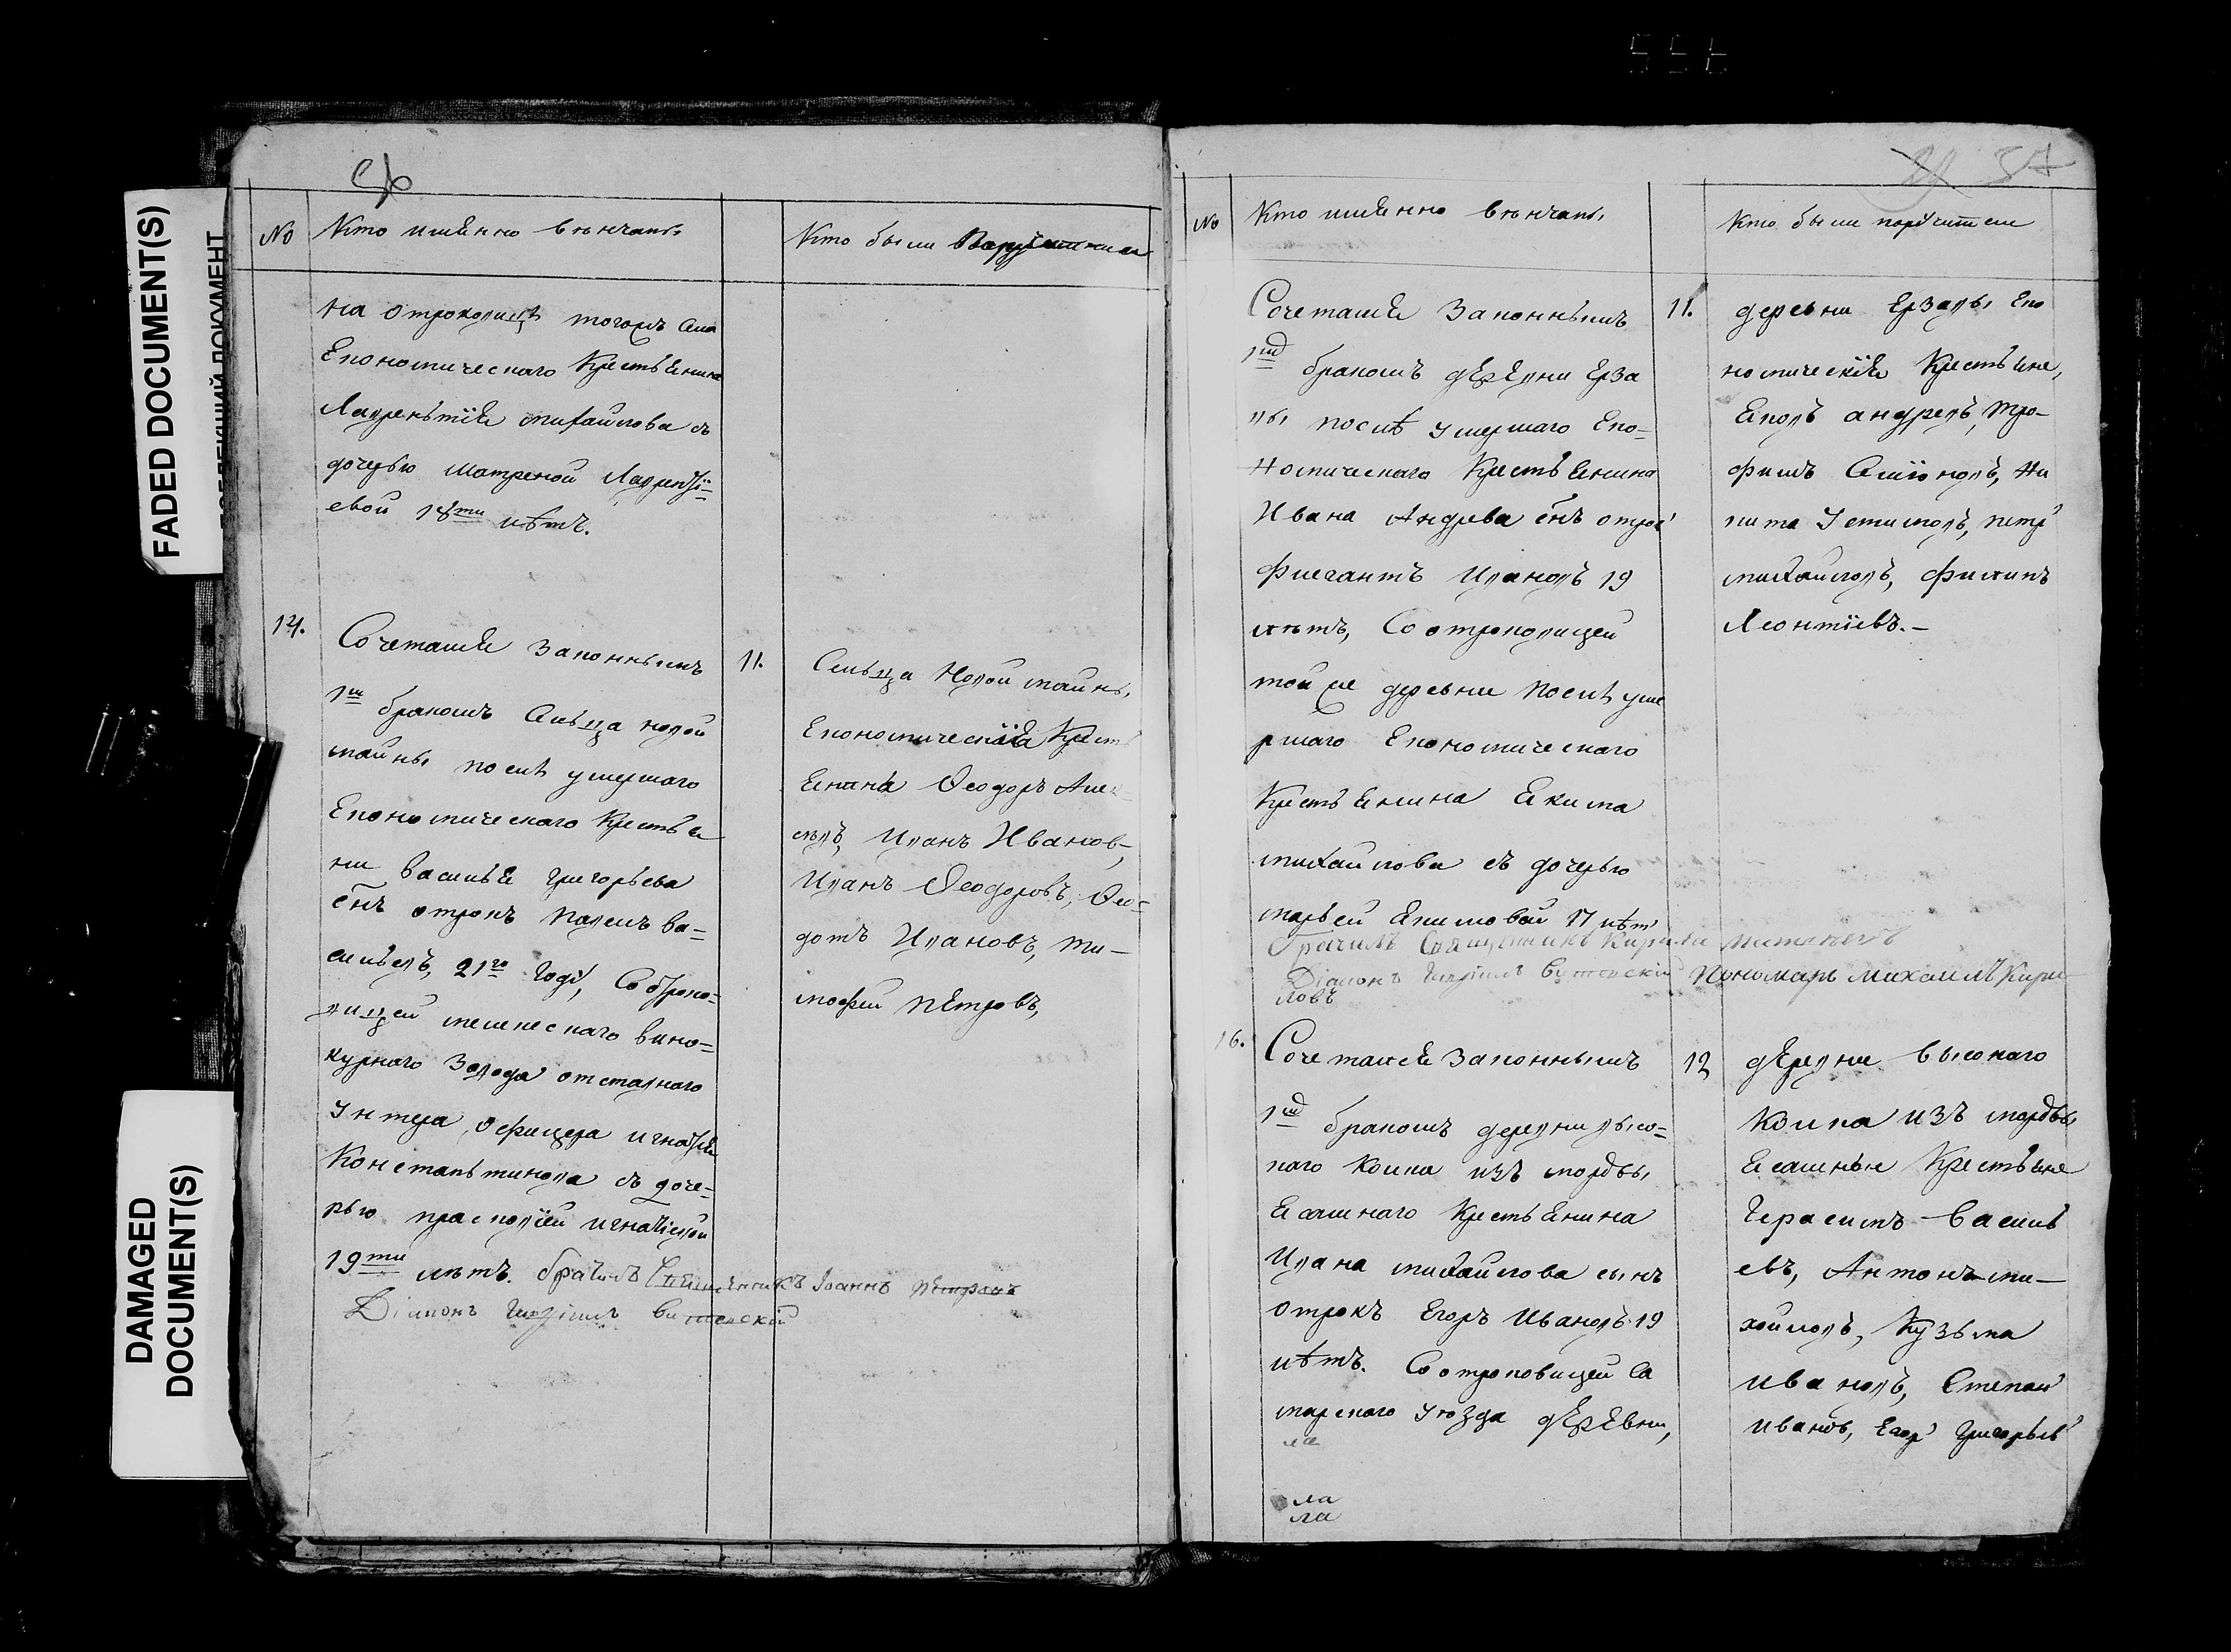 FADED DOCUMENT(S)
DAMAGED DOCUMENT(S)
556
№ Кто имянно венчаны
Кто были Поручители
на отроковицѣ тогожъ села
Економическаго Крестьянина
Лаврентія михайлова съ
дочерью матреной Лаврентіі=
евой 18ти лѣтъ.
14.
Сочетался Законнымъ
1м бракомъ Сельца новой
майны послѣ умершаго
Економическаго Крестья
ни Василья григорьева
снъ отрокъ Павелъ ва=
сильевъ, 21го году, Со отроко=
вицей мелекескаго вино=
курнаго Завода отставнаго
Унтера офицера игнатья
Констаньтинова съ доче=
рью прасковіей игнатіевой
19ти лѣтъ. брачилъ Священникъ Іоаннъ петровъ
Діаконъ Гавріилъ
11.
Сельца Новой майны
Економическія Кресть
Еянина Ѳеодоръ Алек
Иванъ Иванов,
Иванъ Ѳеодоровъ, Ѳео=
дотъ Ивановъ, ти—
мофей пЕтровъ,
37
№ Кто имянно венчаны
Кто были поручители
Сочетался Законнымъ
1м бракомъ дЕрЕвни Ерза
вы послѣ умершаго Еко=
номическаго Крестьянина
Ивана Андрева снъ отрок
Фисантъ Ивановъ 19
лѣтъ, Со отроковицей
той же деревни послѣ уме
ршаго Економическаго
Крестьянина Екима
михайлова съ дочерью
марьей Якимовой 17 лѣт
брачилъ Священникъ Кирилъ
Діаконъ Гавріилъ Пономарь Михаилъ Кири
ловъ
11.
деревни Ерзавы Еко
номическія Крестьяне,
Яковъ андревъ, тро—
фимъ Симіоновъ, Ни
кита Устимовъ, петр
михайловъ, филипъ
Леонтіевъ.—
16.
Сочетался Законнымъ
1м бракомъ деревни высо=
каго Колка изъ мордвы
Ясашнаго Крестьянина
Ивана михайлова сынъ
отрокъ Егоръ Ивановъ 19
лѣтъ. Со отроковицей Са
марского уѣзда дЕрЕвни,
ла
ла
ла
12
дЕревни высокаго
Колка изъ мордвы
Ясашные Крестьяне
Герасимъ Василь
евъ, Антонъ ми—
хайловъ, Кузьма
ивановъ, Степан
ивановъ, Егор Григорьев